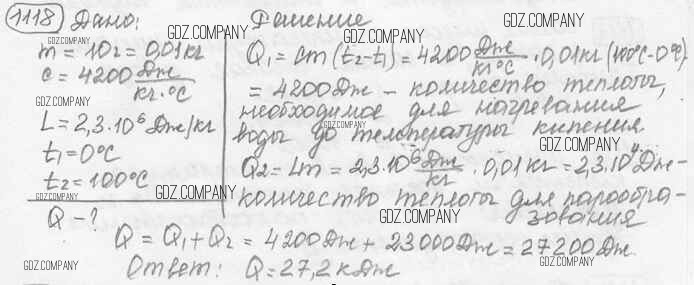 1118 Дано:
m = 10г = 0,01кг
c = 4200 Дж/кг·°C
L = 2,3·10⁶ Дж/кг
t₁ = 0°C
t₂ = 100°C
Q - ?
Решение
Q₁ = cm(t₂-t₁) = 4200 Дж/кг°C · 0,01кг (100°C-0°C)
= 4200Дж - количество теплоты,
необходимое для нагревания
воды до температуры кипения.
Q₂ = Lm = 2,3·10⁶ Дж/кг · 0,01кг = 2,3·10⁴ Дж-
количество теплоты для парообра-
зования
Q = Q₁ + Q₂ = 4200Дж + 23000Дж = 27200Дж.
Ответ: Q = 27,2 кДж
GDZ.COMPANY
GDZ.COMPANY
GDZ.COMPANY
GDZ.COMPANY
GDZ.COMPANY
GDZ.COMPANY
GDZ.COMPANY
GDZ.COMPANY
GDZ.COMPANY
GDZ.COMPANY
GDZ.COMPANY
GDZ.COMPANY
GDZ.COMPANY
GDZ.COMPANY